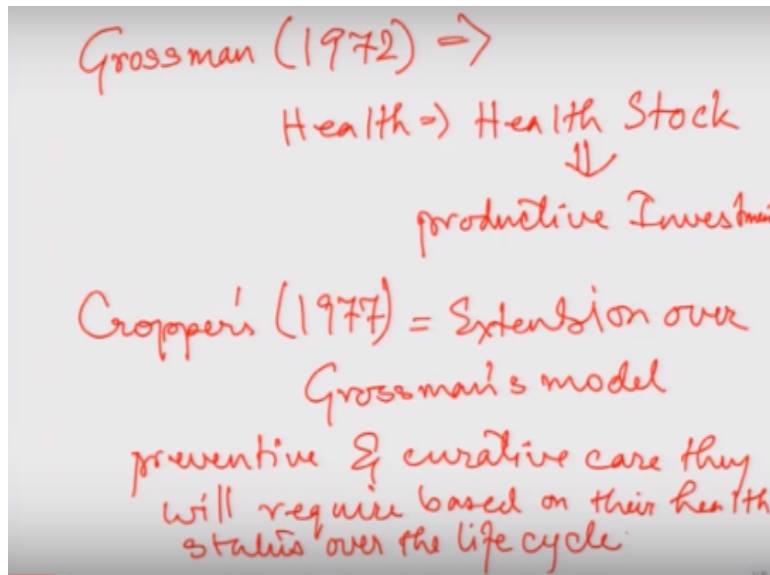 Grossman (1972) ⇒
Health ⇒ Health Stock
⇓
productive Investmen
Cropper's (1977) = Extension over
Grossman's model
preventive & curative care they
will require based on their health
status over the life cycle.